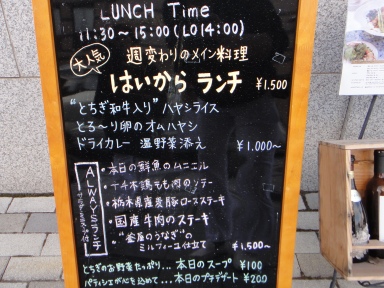 LUNCH Time
11:30~15:00(LO14:00)
大人気
週変わりのメイン料理
はいから ランチ ¥1.500
"とちぎ和牛入り"ハヤシライス
とろ〜り卵のオムハヤシ
ドライカレー 温野菜添え ¥1.000~
ALWAYSランチ
・本日の鮮魚のムニエル
・十千木鶏もも肉のソテー
・栃木県産麦豚ロースステーキ
・国産牛肉のステーキ
・"釜屋のうなぎ"の
ミルフィーユ仕立て ¥1,500~
とちぎのお野菜たっぷり... 本日のスープ ¥100
パティシエが心を込めて... 本日のプチデザート ¥200